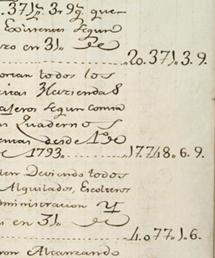 .371ps. 3. 9gs. que
Existencias segun
ro en 31. de
20.371.3.9.
ortan todos los
citas Hazienda8
segun consta
Quaderno s
desde 1º de
1793. 17.748.6.9.
en Deviendo todos
Alquilados, Escoteros
dministracion Y
s en 31. de
4.077.1.6.
ron Alcanzando